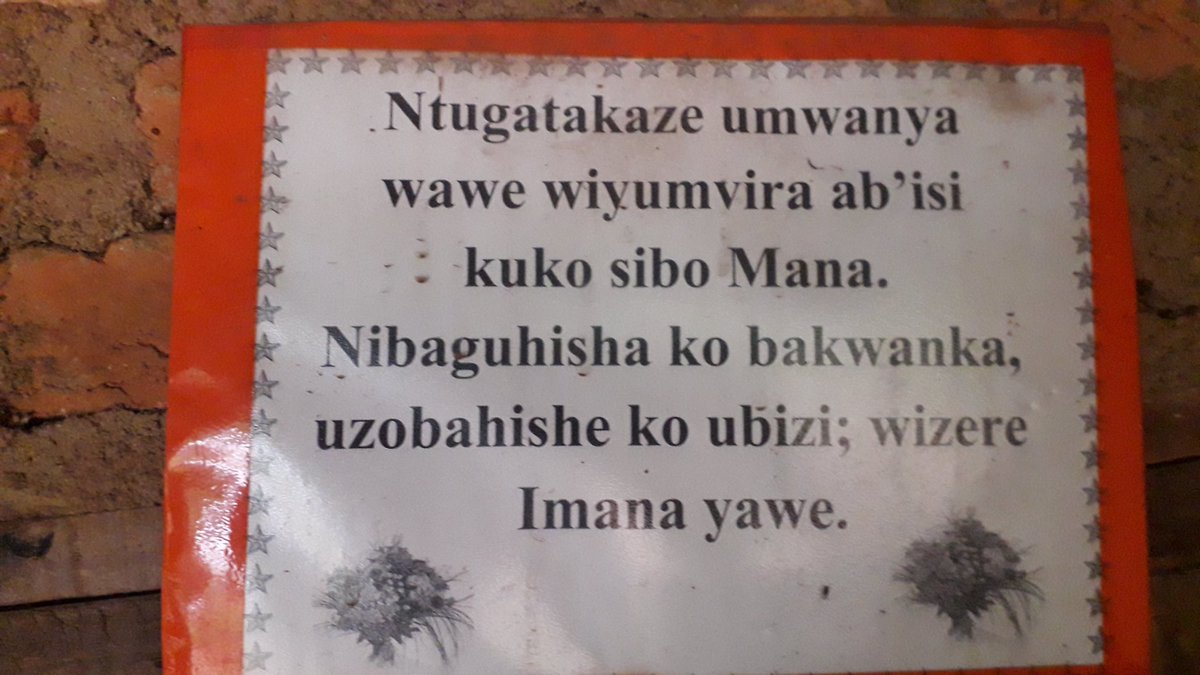 Ntugatakaze umwanya
wawe wiyumvira ab’isi
kuko sibo Mana.
Nibaguhisha ko bakwanka,
uzobahishe ko ubizi; wizere
Imana yawe.